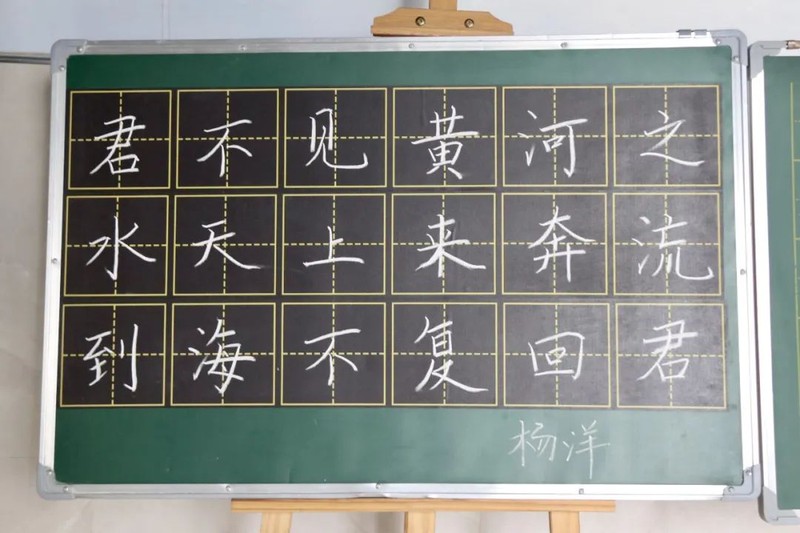 君不见黄河之
水天上来奔流
到海不复回君
杨洋